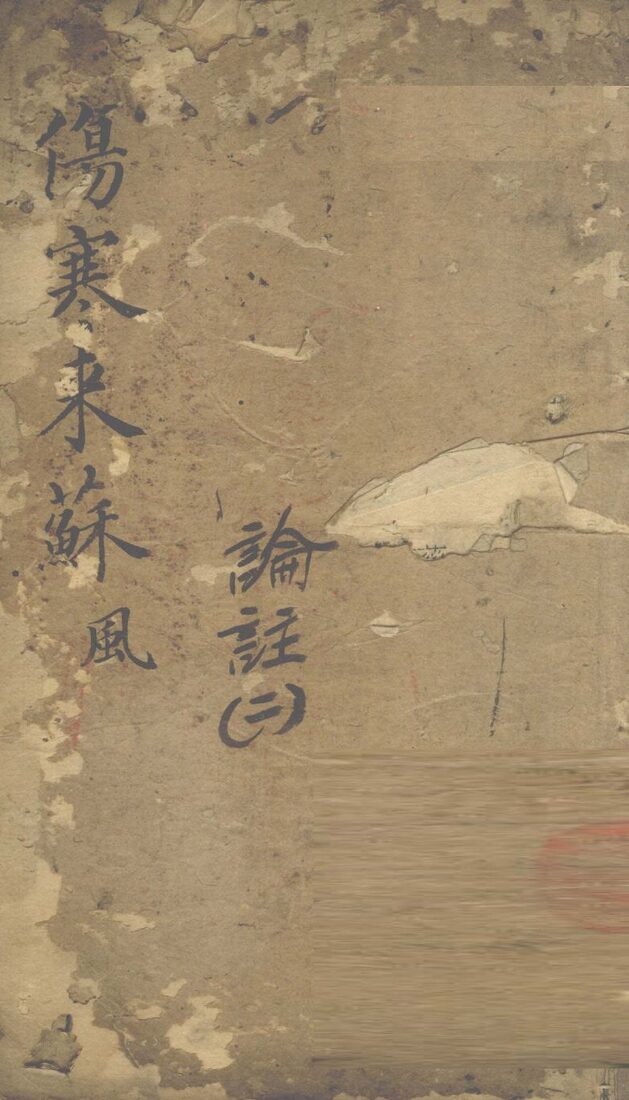 論註(二)
傷寒来蘇 風